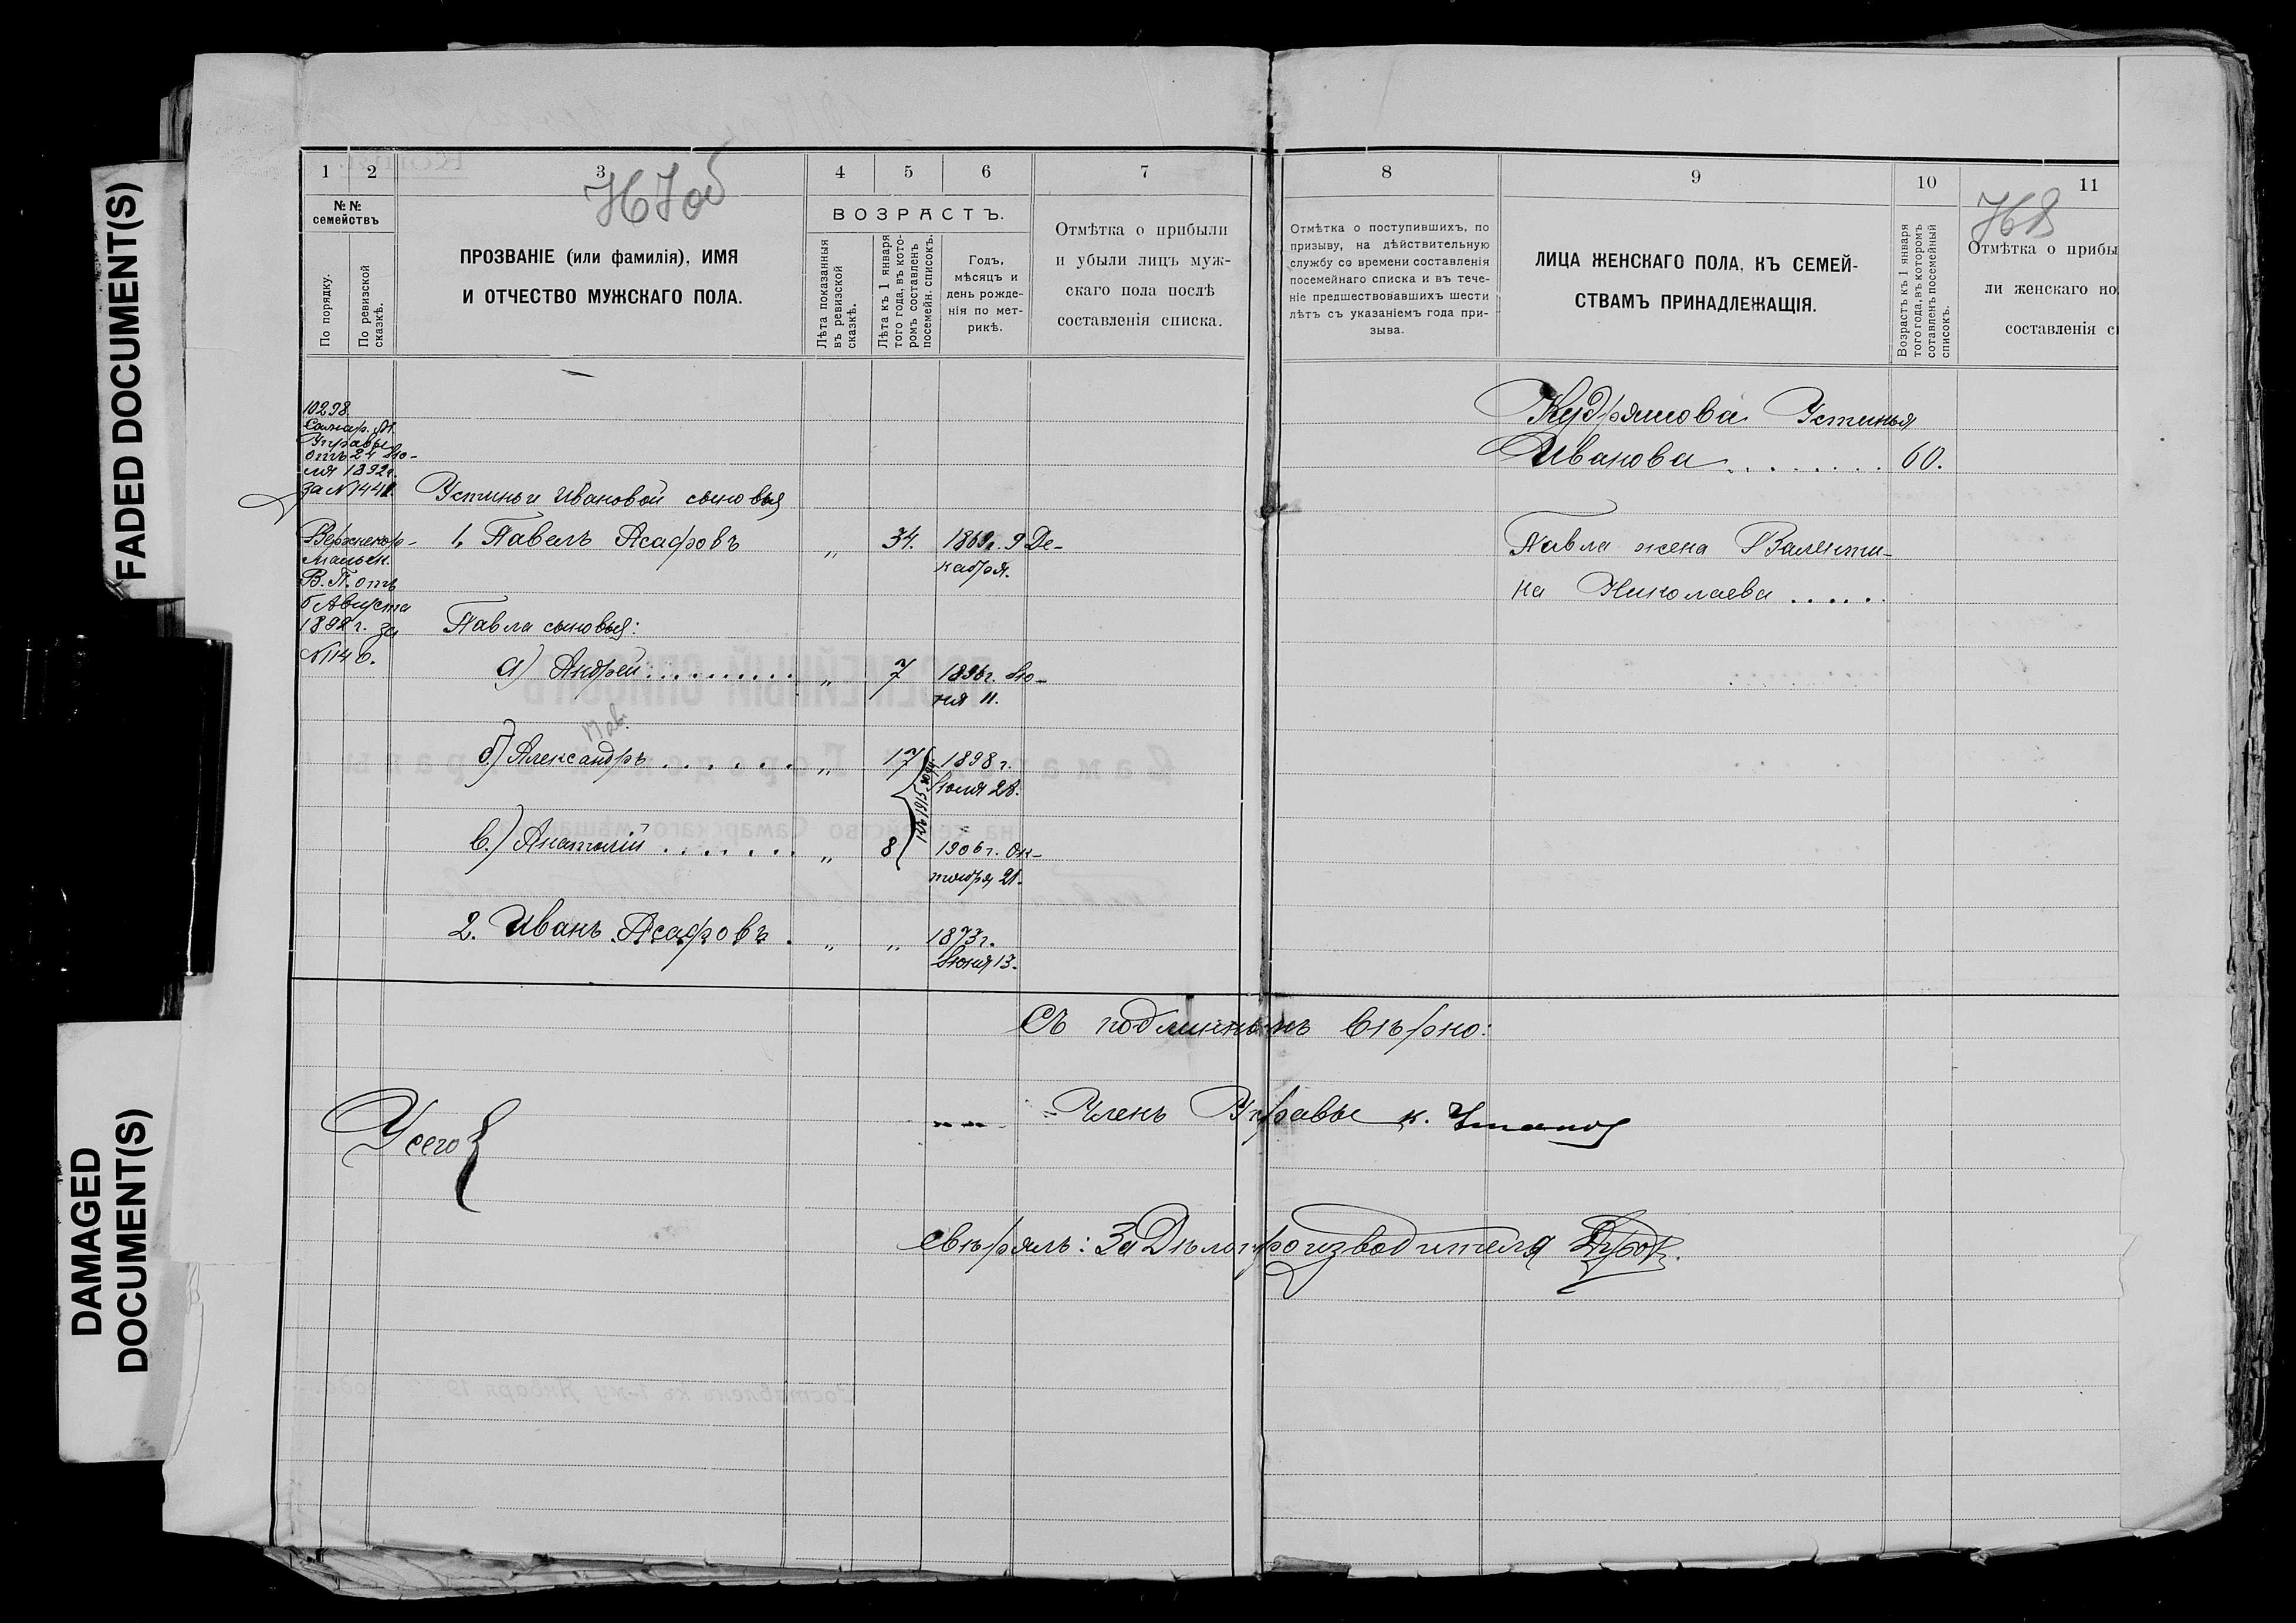 FADED DOCUMENT(S)
DAMAGED
DOCUMENT(S)
1
2
3
4
5
6
7
№№
семействъ
По порядку.
По ревизской
сказкѣ.
ПРОЗВАНІЕ (или фамилія), ИМЯ
И ОТЧЕСТВО МУЖСКАГО ПОЛА.
ВОЗРАСТЪ.
Лѣта показанныя
въ ревизской
сказкѣ.
Лѣта къ 1 января
того года, въ кото-
ромъ составленъ
посемейн. списокъ.
Годъ,
мѣсяцъ и
день рожде-
нія по мет-
рикѣ.
Отмѣтка о прибыли
и убыли лицъ муж-
скаго пола послѣ
составленія списка.
10298.
Самар. М.
Управы
отъ 24 Ію-
ля 1892г.
за №
В. П. отъ
Августа
г. за
№ 1146.
Устиньи Ивановой сыновья
1, Павелъ Асафовъ „ 34. 1869г. 9 Де-
кабря.
Павла сыновья:
а) Андрей .......... „ 7 1896г. Ію-
ня 11.
б) Александръ ....... „ 17 1898 г.
Іюля 28.
къ 1915 году
в.) Анатолій ....... „ 8 1906г. Ок-
тября 21.
2. Иванъ Асафовъ. „ „ 1873г.
Іюня 13.
8
9
10
11
Отмѣтка о поступившихъ, по
призыву, на дѣйствительную
службу со времени составленія
посемейнаго списка и въ тече-
ніе предшествовавшихъ шести
лѣтъ съ указаніемъ года при-
зыва.
ЛИЦА ЖЕНСКАГО ПОЛА, КЪ СЕМЕЙ-
СТВАМЪ ПРИНАДЛЕЖАЩІЯ.
Возрастъ къ 1 января
того года, въ которомъ
сотавленъ посемейный
списокъ.
Отмѣтка о прибы
ли женскаго по
составленія с
Кудряшова Устинья
Иванова ........ 60.
Павла жена Валенти-
на Николаева .....
Съ подлиннымъ вѣрно:
Членъ Управы
Свѣрялъ: За Дѣлопроизводителя